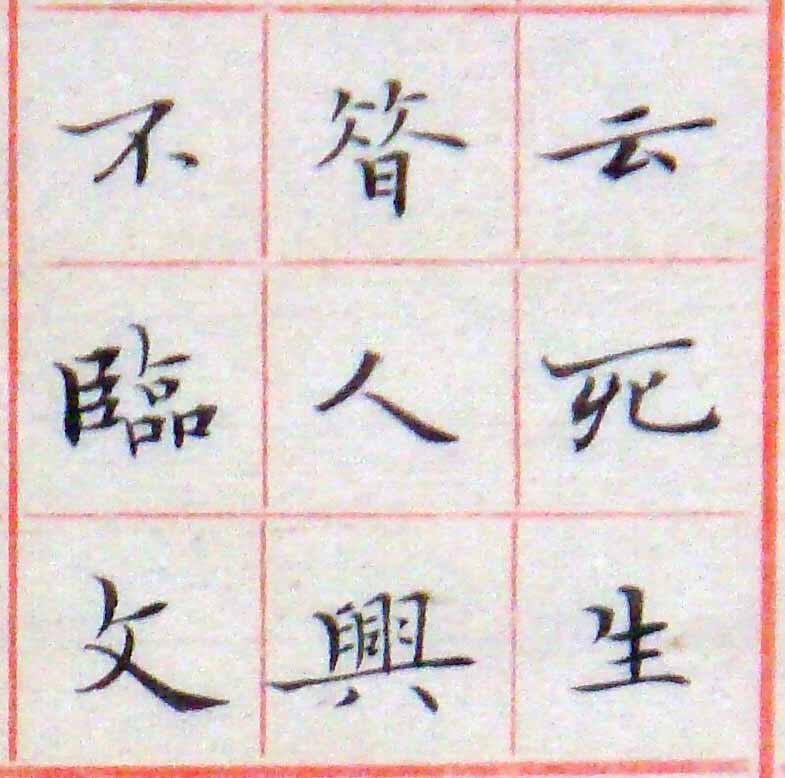 云死生
昔人興
不臨文